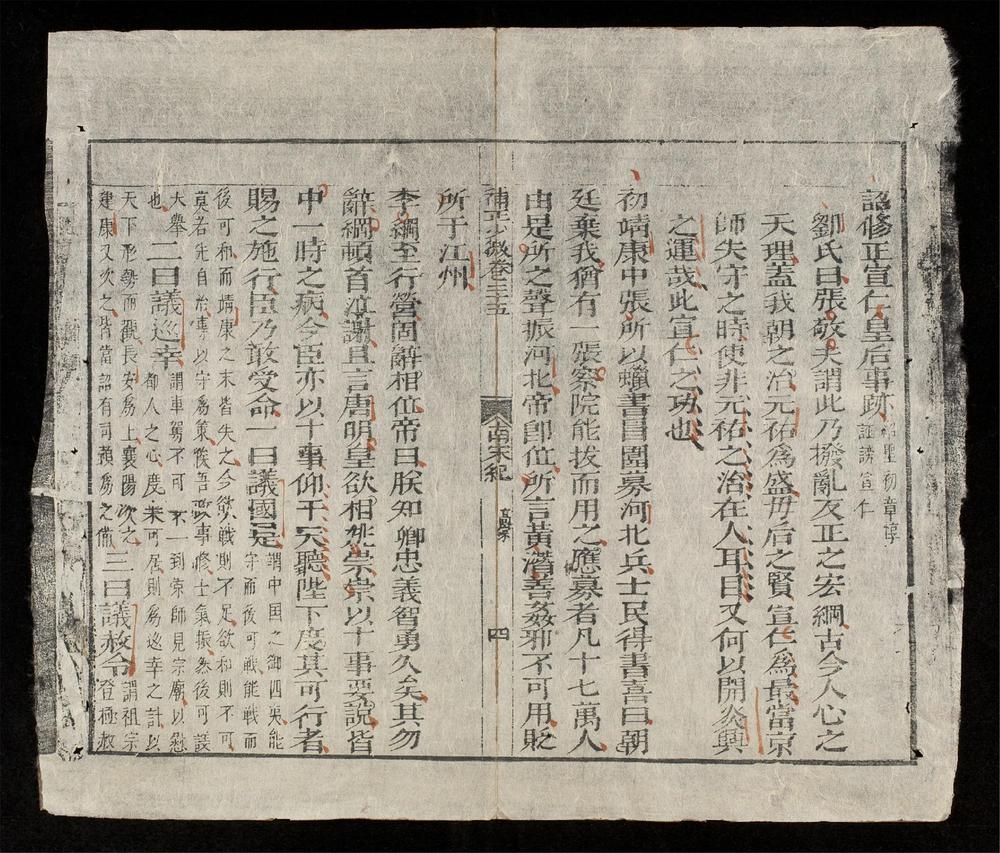 詔修正宣仁皇后事跡紹聖初章惇誣謗宣仁
劉氏曰張敬夫謂此乃撥亂反正之宏綱古今人心之
天理蓋我朝之治元祐為盛毋后之賢宣仁為最當京
師失守之時使非元祐之治在人耳目又何以開炎興
之運哉此宣仁之功也
初靖康中張所以蠟書冒圍募河北兵士民得書喜曰朝
廷棄我猶有一張察院能拔而用之應募者凡十七萬人
由是所之聲振河北帝即位所言黃潛善姦邪不可用貶
所于江州
補正少微卷三十五 南宋紀 高宗 四
李綱至行營固辭相位帝曰朕知卿忠義智勇久矣其勿
辭綱頓首泣謝且言唐明皇欲相姚崇崇以十事要說皆
中一時之病今臣亦以十事仰干天聽陛下度其可行者
賜之施行臣乃敢受命一曰議國是謂中国之御四夷能守而後可戰能戰而
後可和而靖康之末皆失之今欲戰則不足欲和則不可莫若先自治專以守為策俟吾政事修士氣振然後可議
大舉也二曰議巡幸謂車駕不可不一到京師見宗廟以慰都人之心度未可居則為巡幸之計以
天下形勢而觀長安為上襄陽次之建康又次之皆當詔有司預為之備三曰議赦令謂祖宗登極赦